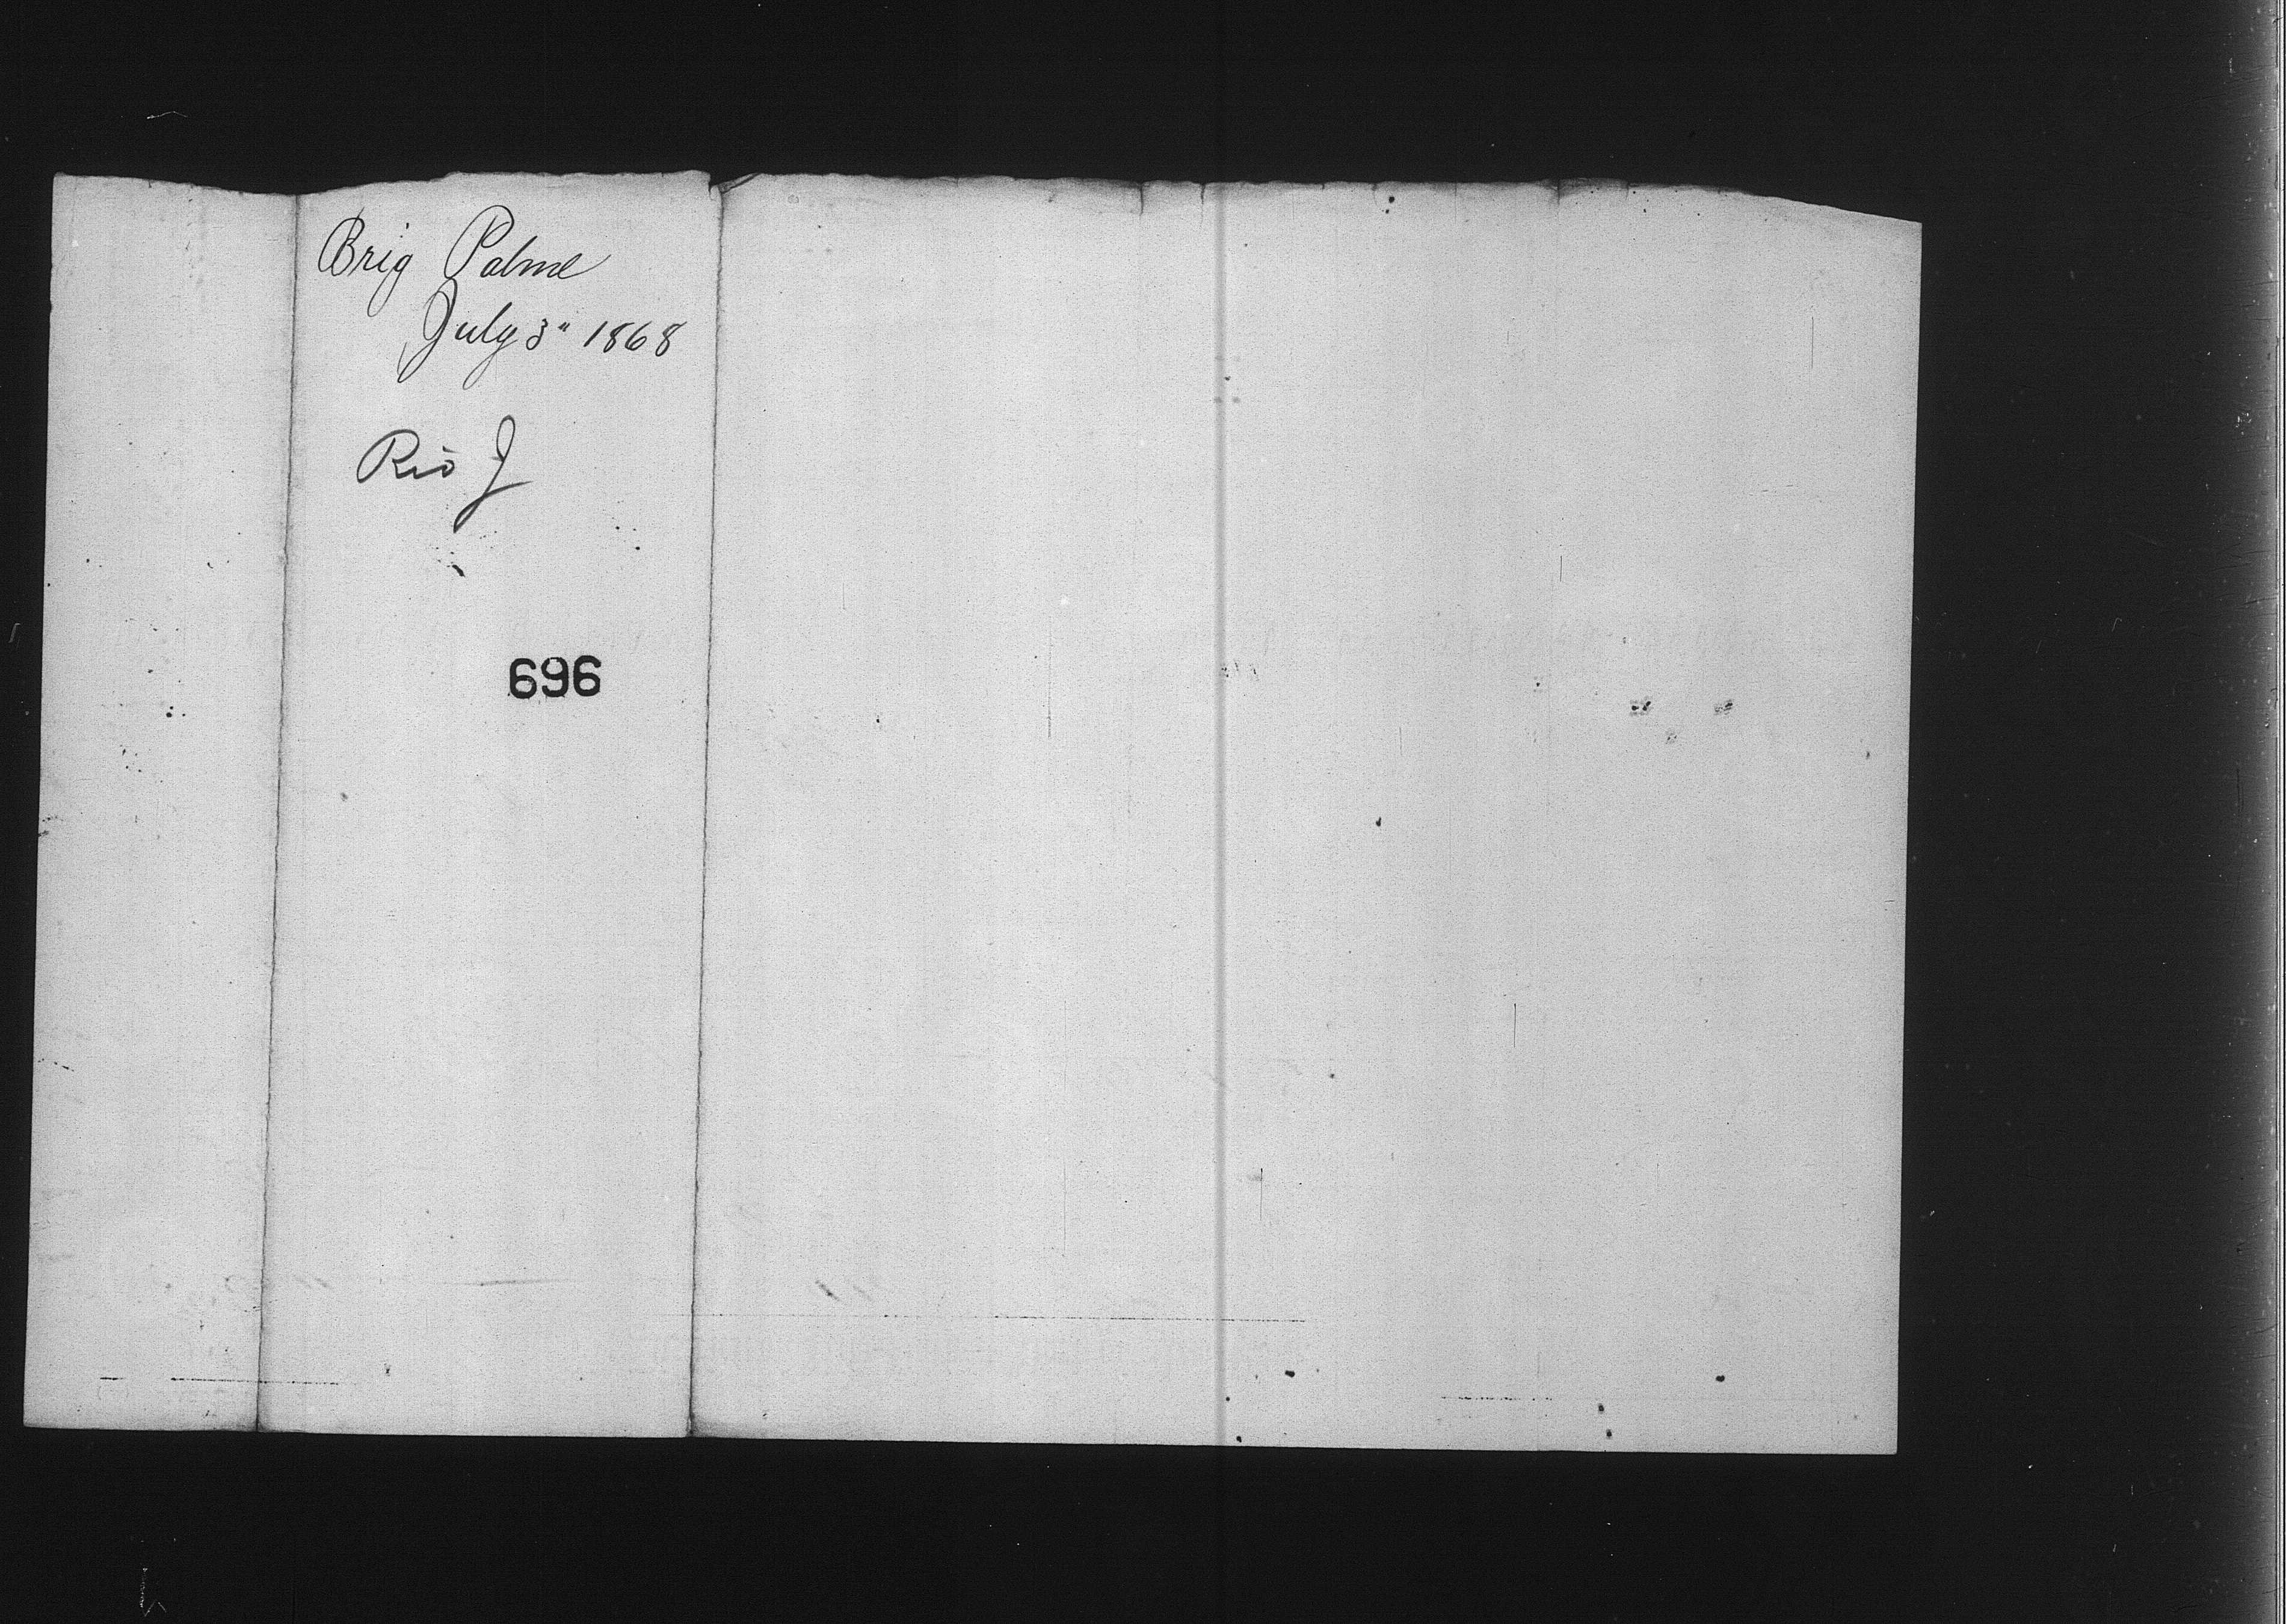 Brig Palme
July 3" 1868
Rio J
696